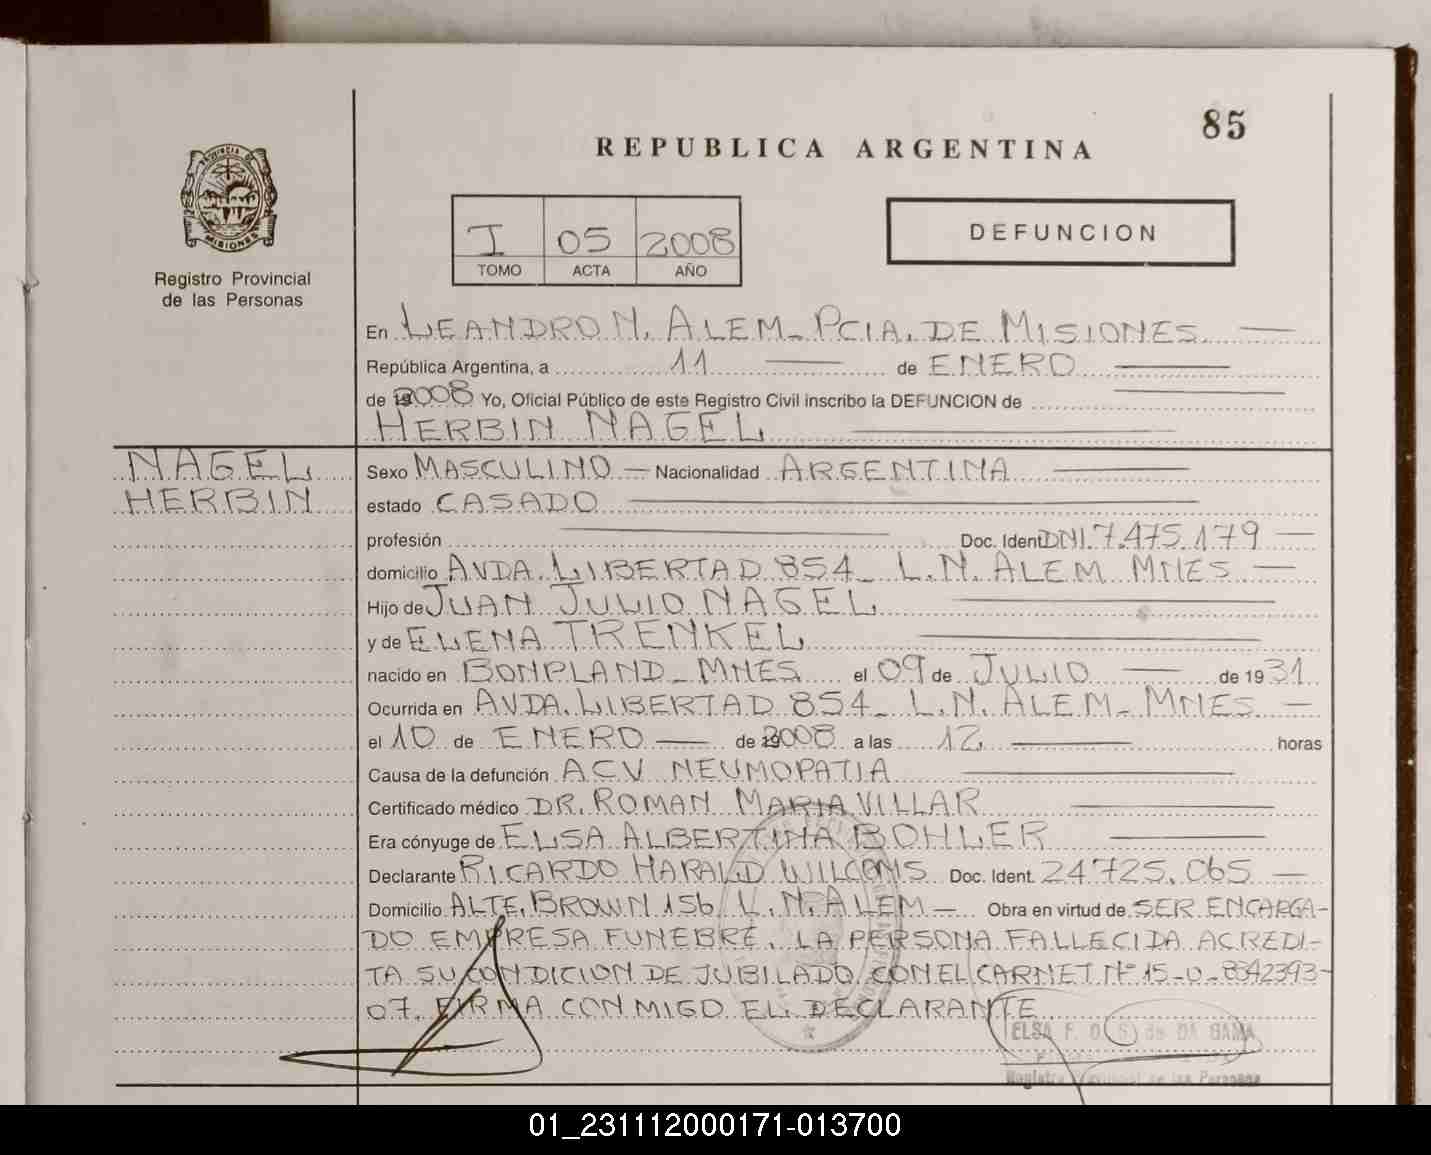 85
REPUBLICA ARGENTINA
PROVINCIA DE
MISIONES
Registro Provincial
de las Personas
I 05 2008
TOMO ACTA AÑO
DEFUNCION
En LEANDRO N. ALEM - PCIA. DE MISIONES
República Argentina, a 11 de ENERO
de 2008 Yo, Oficial Público de este Registro Civil inscribo la DEFUNCION de
HERBIN NAGEL
NAGEL
HERBIN
Sexo MASCULINO Nacionalidad ARGENTINA
estado CASADO
profesión Doc. Ident DNI. 7.475.179
domicilio AVDA. LIBERTAD 854 - L.N. ALEM MNES
Hijo de JUAN JULIO NAGEL
y de ELENA TRENKEL
nacido en BONPLAND - MNES el 09 de JULIO de 1931
Ocurrida en AVDA. LIBERTAD 854 - L.N. ALEM - MNES
el 10 de ENERO de 2008 a las 12 horas
Causa de la defunción ACV NEUMOPATIA
Certificado médico DR. ROMAN MARIA VILLAR
Era cónyuge de ELSA ALBERTINA BOHLER
Declarante RICARDO HARALD Doc. Ident. 24.725.065
Domicilio ALTE. BROWN 156 L.N. ALEM - Obra en virtud de SER ENCARGA-
DO EMPRESA FUNEBRE. LA PERSONA FALLECIDA ACREDI-
TA SU CONDICION DE JUBILADO CON EL CARNET Nº 15-0-8342393-
07. FIRMA CONMIGO EL DECLARANTE
ELSA F. O. S. de DA GAMA
Registro Provincial de las Personas
01_231112000171-013700